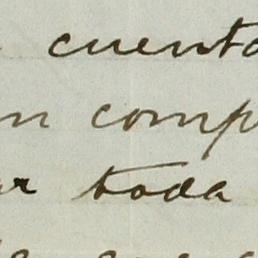 cuenta
n comp
r toda